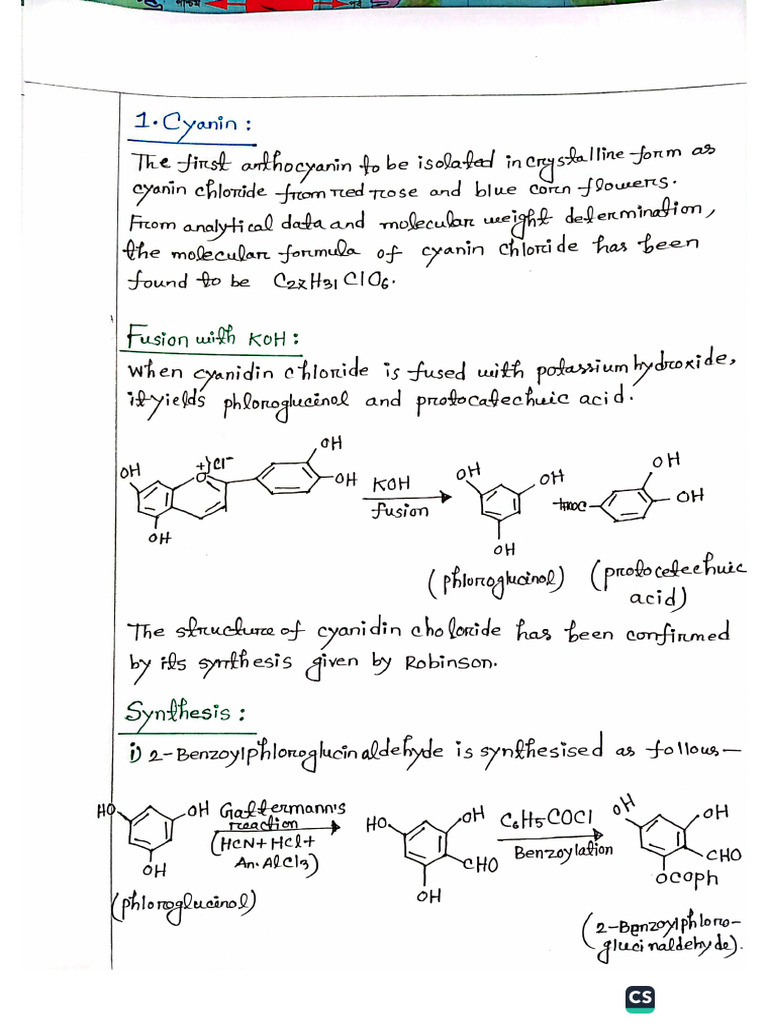 1. Cyanin :
The first anthocyanin to be isolated in crystalline form as
cyanin chloride from red rose and blue corn flowers.
From analytical data and molecular weight determination,
the molecular formula of cyanin chloride has been
found to be C27H31ClO6.
Fusion with KOH :
When cyanidin chloride is fused with potassium hydroxide,
it yields phloroglucinol and protocatechuic acid.
OH +}Cl- OH
O OH KOH OH OH OH
fusion HOOC OH
OH OH
(phloroglucinol) (protocetechuic
acid)
The structure of cyanidin choloride has been confirmed
by its synthesis given by Robinson.
Synthesis :
i) 2-Benzoylphloroglucinaldehyde is synthesised as follows—
HO OH Gattermann's
reaction
(HCN + HCl +
An. AlCl3)
OH
(phloroglucinol)
HO OH
CHO
OH
C6H5COCl
Benzoylation
OH OH
CHO
OCOph
(2-Benzoylphloro-
glucinaldehyde).
CS